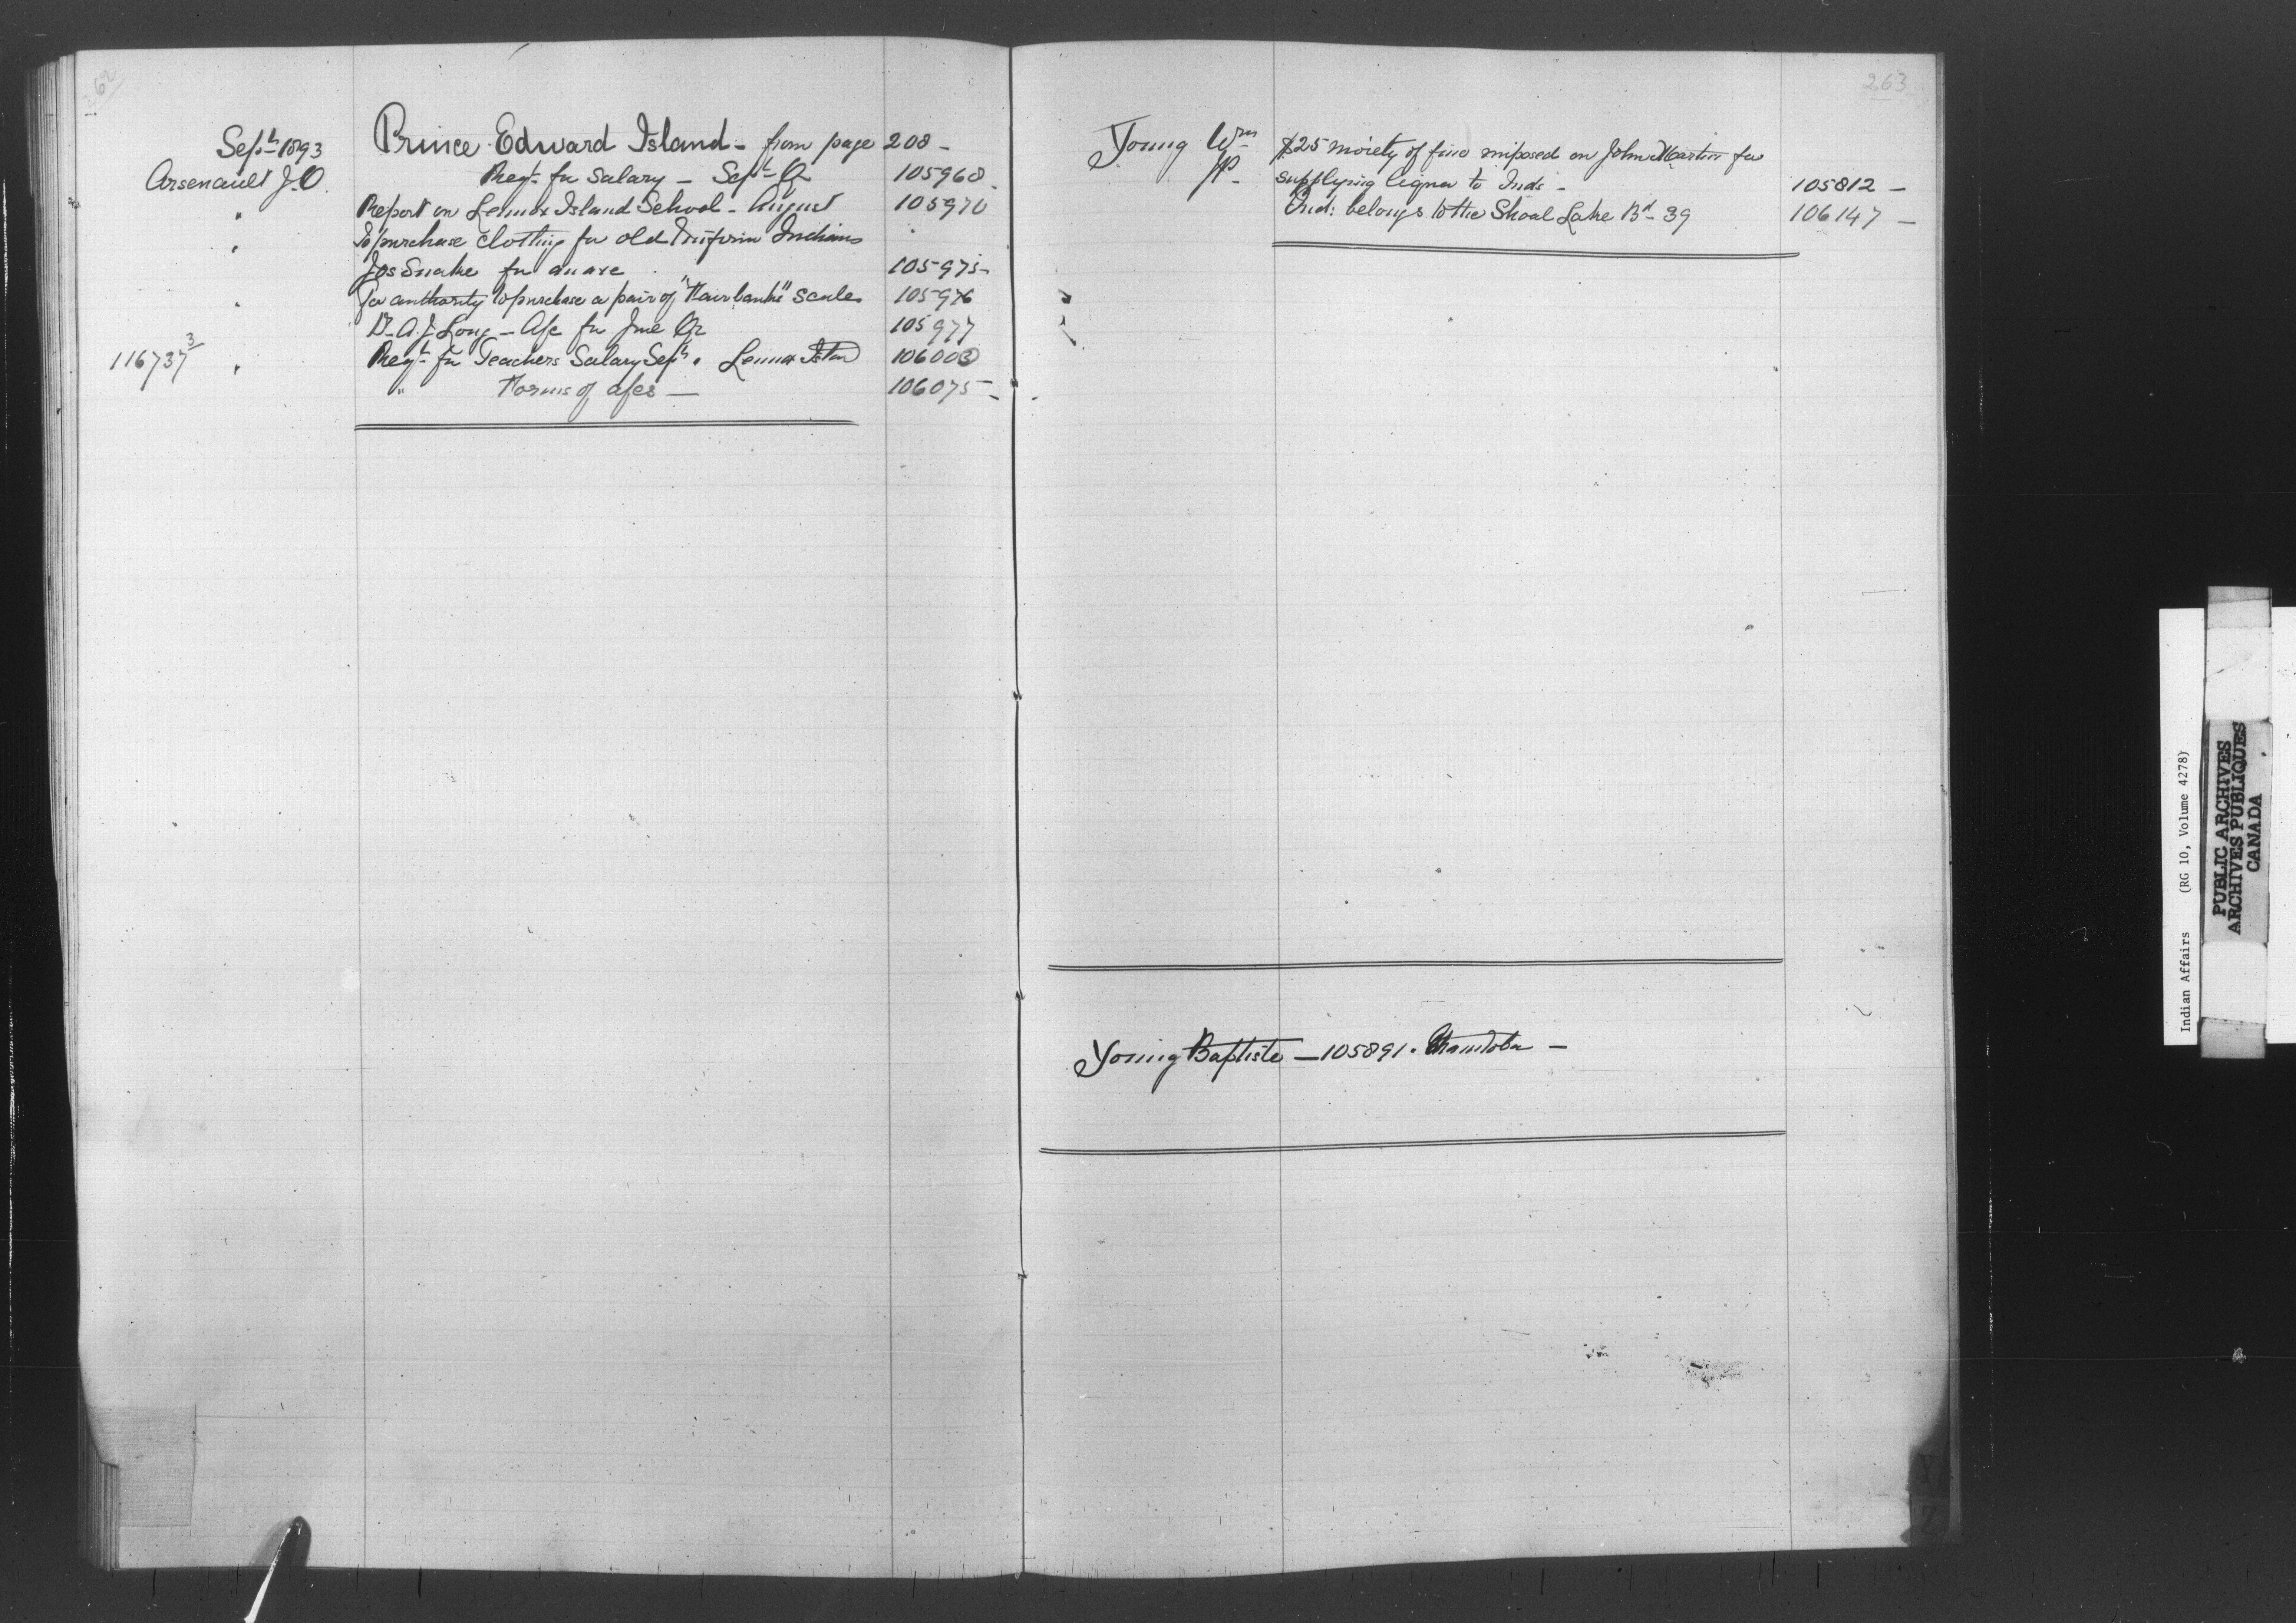 262
Septr 1893 Prince Edward Island - from page 208 -
Arsenault J.O. Reqt for Salary - Sept Qr 105968 -
" Report on Lennox Island School - August 105970
" To purchase clothing for old & infirm Indians "
Jos Snake for an axe 105975 -
" For authority to purchase a pair of "Fairbanks" scales 105976
Dr A. J. Long - A/c for June Qr 105977
116737 3 " Reqt for Teachers Salary Sept " Lennox Island 106003
" Forms of a/cs - 106075 -
263
Young Wm $25 moiety of fine imposed on John Martin for
JP - supplying liquor to Inds - 105812 -
Ind: belongs to the Shoal Lake Bd - 39 106147 -
Young Baptiste - 105891 . Manitoba -
Y
Z
Indian Affairs (RG 10, Volume 4278)
PUBLIC ARCHIVES
ARCHIVES PUBLIQUES
CANADA